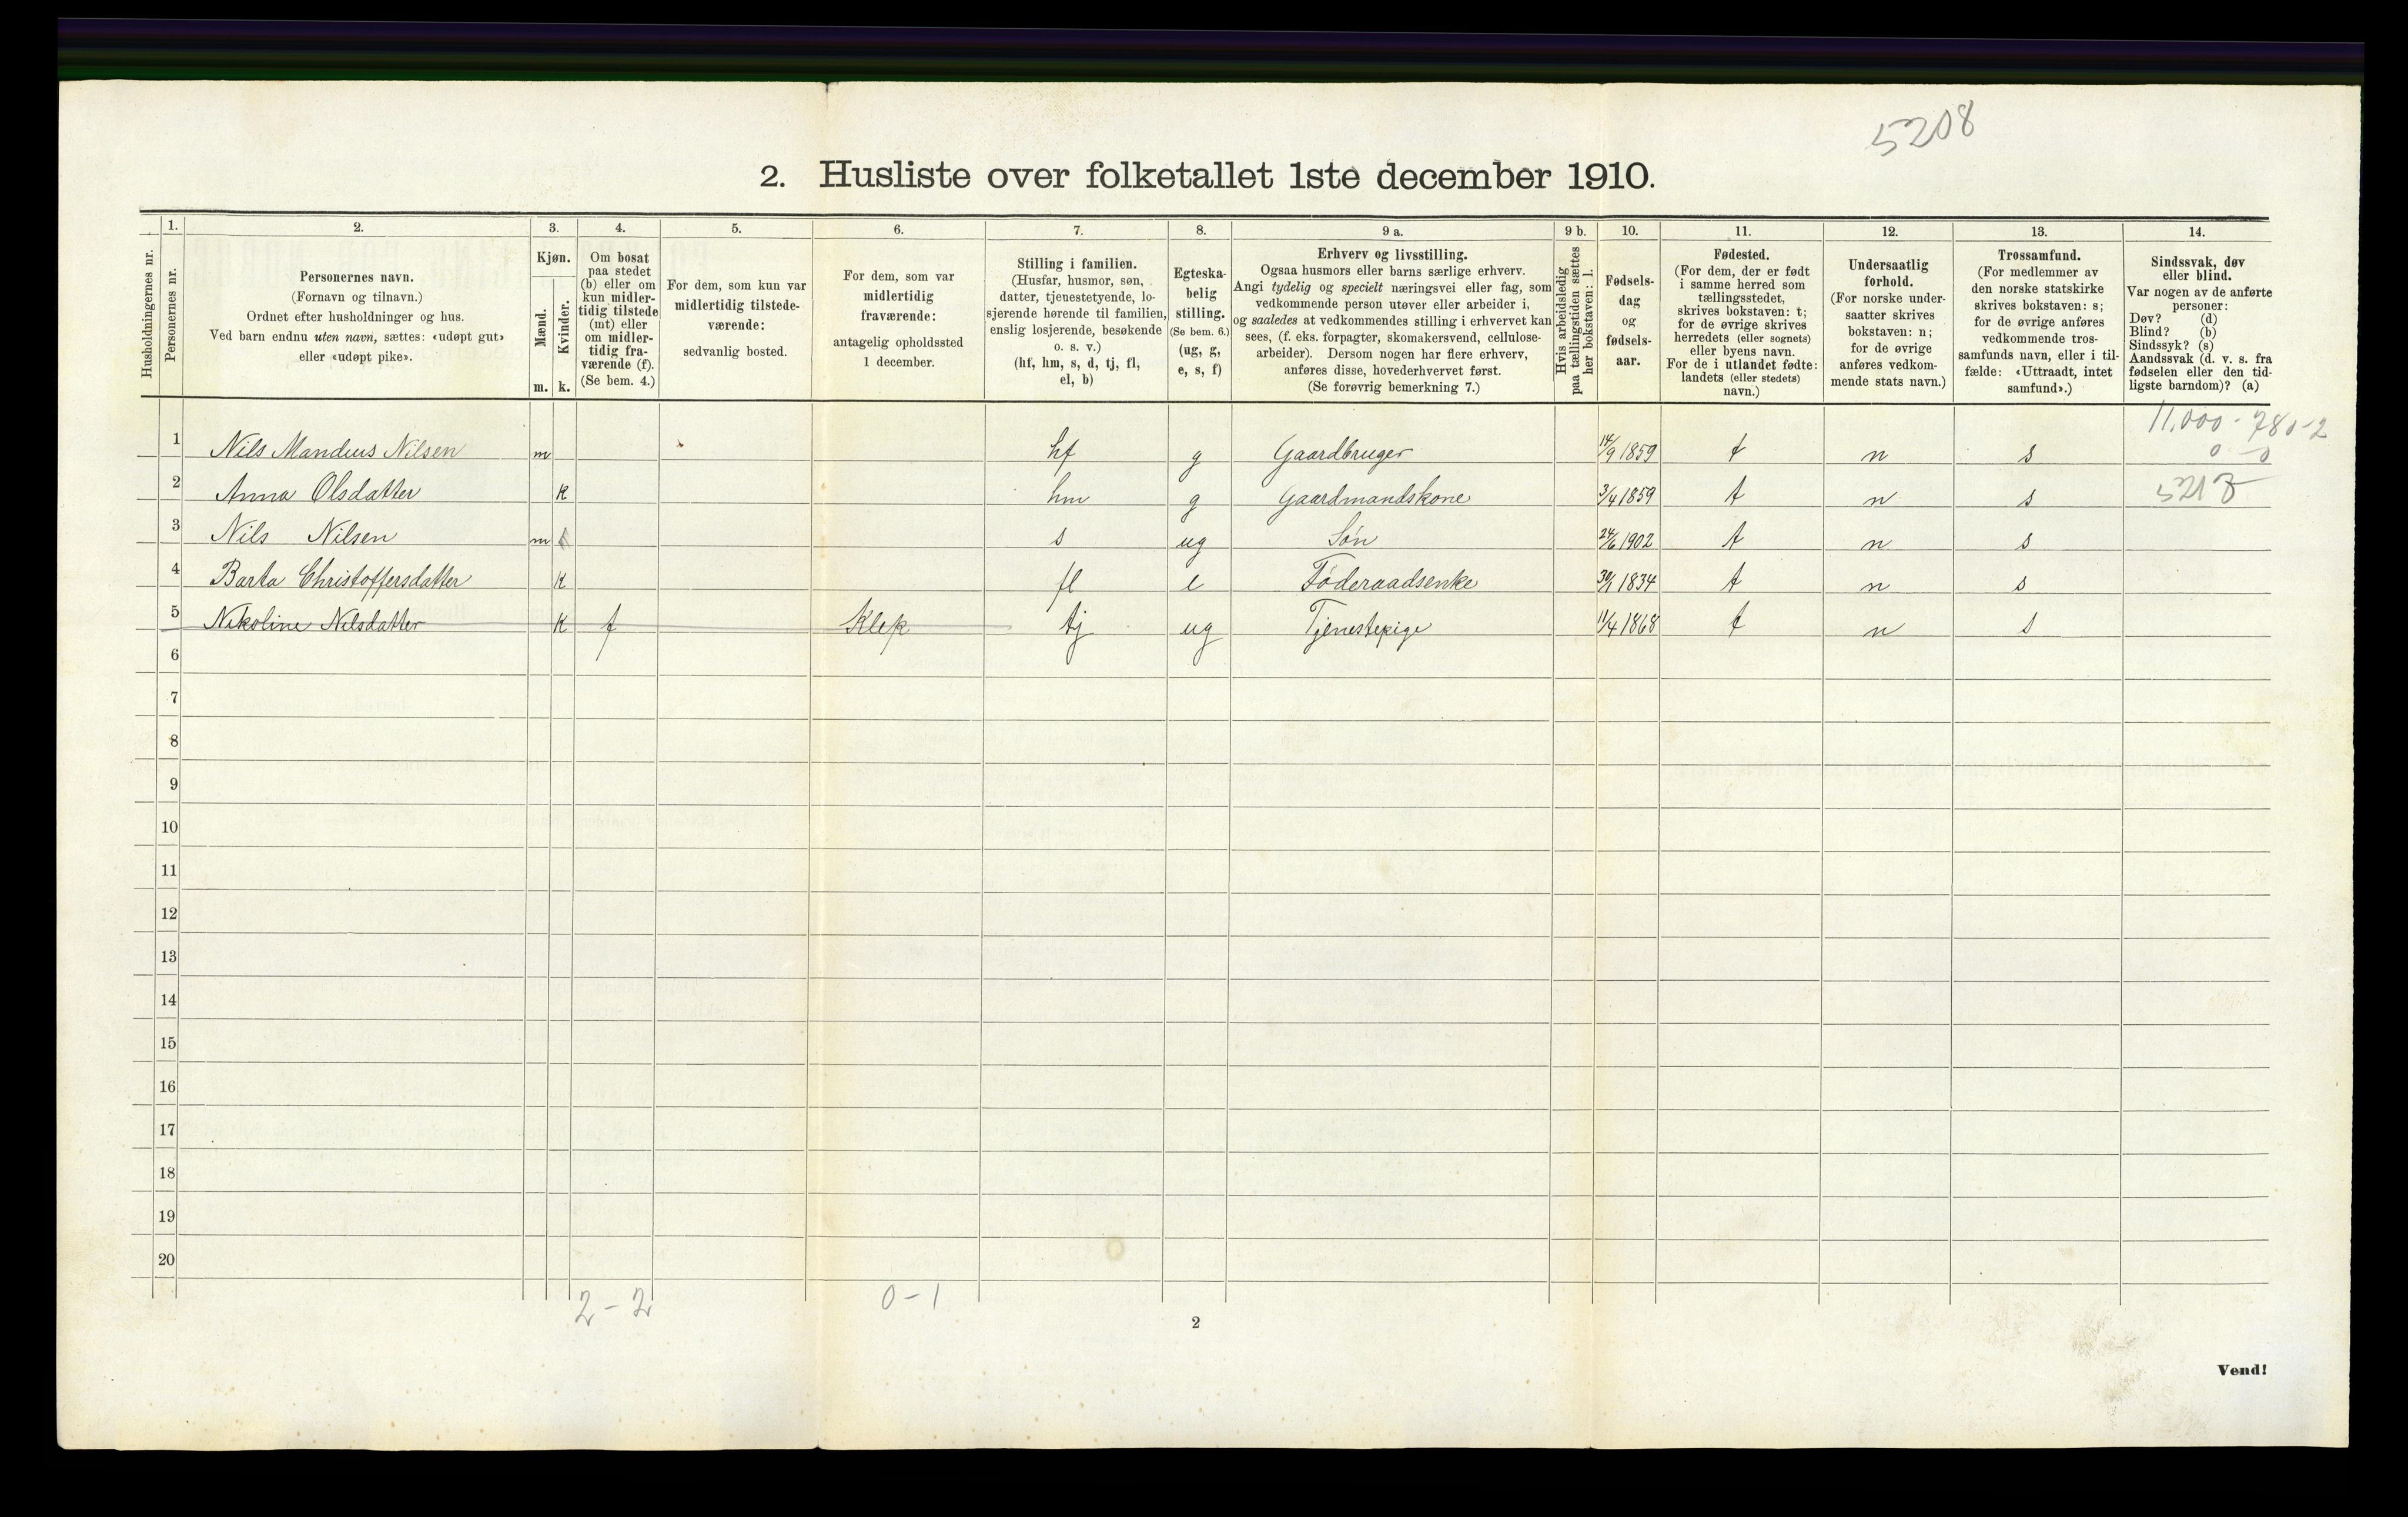 5208
2. Husliste over folketallet 1ste december 1910.
Husholdningernes nr.
1.
Personernes nr.
2.
Personernes navn.
(Fornavn og tilnavn.)
Ordnet efter husholdninger og hus.
Ved barn endnu uten navn, sættes: «udøpt gut»
eller «udøpt pike».
3.
Kjøn.
Mænd.
m.
Kvinder.
k.
4.
Om bosat
paa stedet
(b) eller om
kun midler-
tidig tilstede
(mt) eller
om midler-
tidig fra-
værende (f).
(Se bem. 4.)
5.
For dem, som kun var
midlertidig tilstede-
værende:
sedvanlig bosted.
6.
For dem, som var
midlertidig
fraværende:
antagelig opholdssted
1 december.
7.
Stilling i familien.
(Husfar, husmor, søn,
datter, tjenestetyende, lo-
sjerende hørende til familien,
enslig losjerende, besøkende
o. s. v.)
(hf, hm, s, d, tj, fl,
el, b)
8.
Egteska-
belig
stilling.
(Se bem. 6.)
(ug, g,
e, s, f)
9 a.
Erhverv og livsstilling.
Ogsaa husmors eller barns særlige erhverv.
Angi tydelig og specielt næringsvei eller fag, som
vedkommende person utøver eller arbeider i,
og saaledes at vedkommendes stilling i erhvervet kan
sees, (f. eks. forpagter, skomakersvend, cellulose-
arbeider). Dersom nogen har flere erhverv,
anføres disse, hovederhvervet først.
(Se forøvrig bemerkning 7.)
9 b.
Hvis arbeidsledig
paa tællingstiden sættes
her bokstaven: l.
10.
Fødsels-
dag
og
fødsels-
aar.
11.
Fødested.
(For dem, der er født
i samme herred som
tællingsstedet,
skrives bokstaven: t;
for de øvrige skrives
herredets (eller sognets)
eller byens navn.
For de i utlandet fødte:
landets (eller stedets)
navn.)
12.
Undersaatlig
forhold.
(For norske under-
saatter skrives
bokstaven: n;
for de øvrige
anføres vedkom-
mende stats navn.)
13.
Trossamfund.
(For medlemmer av
den norske statskirke
skrives bokstaven: s;
for de øvrige anføres
vedkommende tros-
samfunds navn, eller i til-
fælde: «Uttraadt, intet
samfund».)
14.
Sindssvak, døv
eller blind.
Var nogen av de anførte
personer:
Døv? (d)
Blind? (b)
Sindssyk? (s)
Aandssvak (d. v. s. fra
fødselen eller den tid-
ligste barndom)? (a)
11.000 - 780-2
0 - 0
1 Nils Mandius Nilsen m hf g Gaardbruger 14/9 1859 t n s
2 Anna Olsdatter k hm g Gaardmandskone 3/4 1859 t n s 5218
3 Nils Nilsen m s ug Søn 24/6 1902 t n s
4 Barta Christoffersdatter k fl e Føderaadsenke 30/1 1834 t n s
5 Nikoline Nilsdatter k f Klep tj ug Tjenestepige 11/4 1868 t n s
6
7
8
9
10
11
12
13
14
15
16
17
18
19
20
2 - 2 0 - 1
2
Vend!